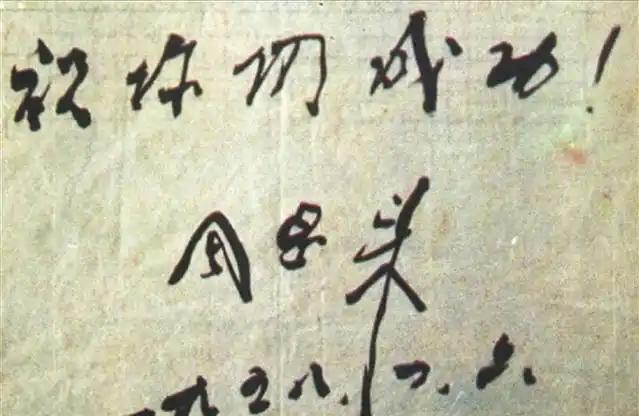 祝你们成功！
周恩来
一九五八.六.